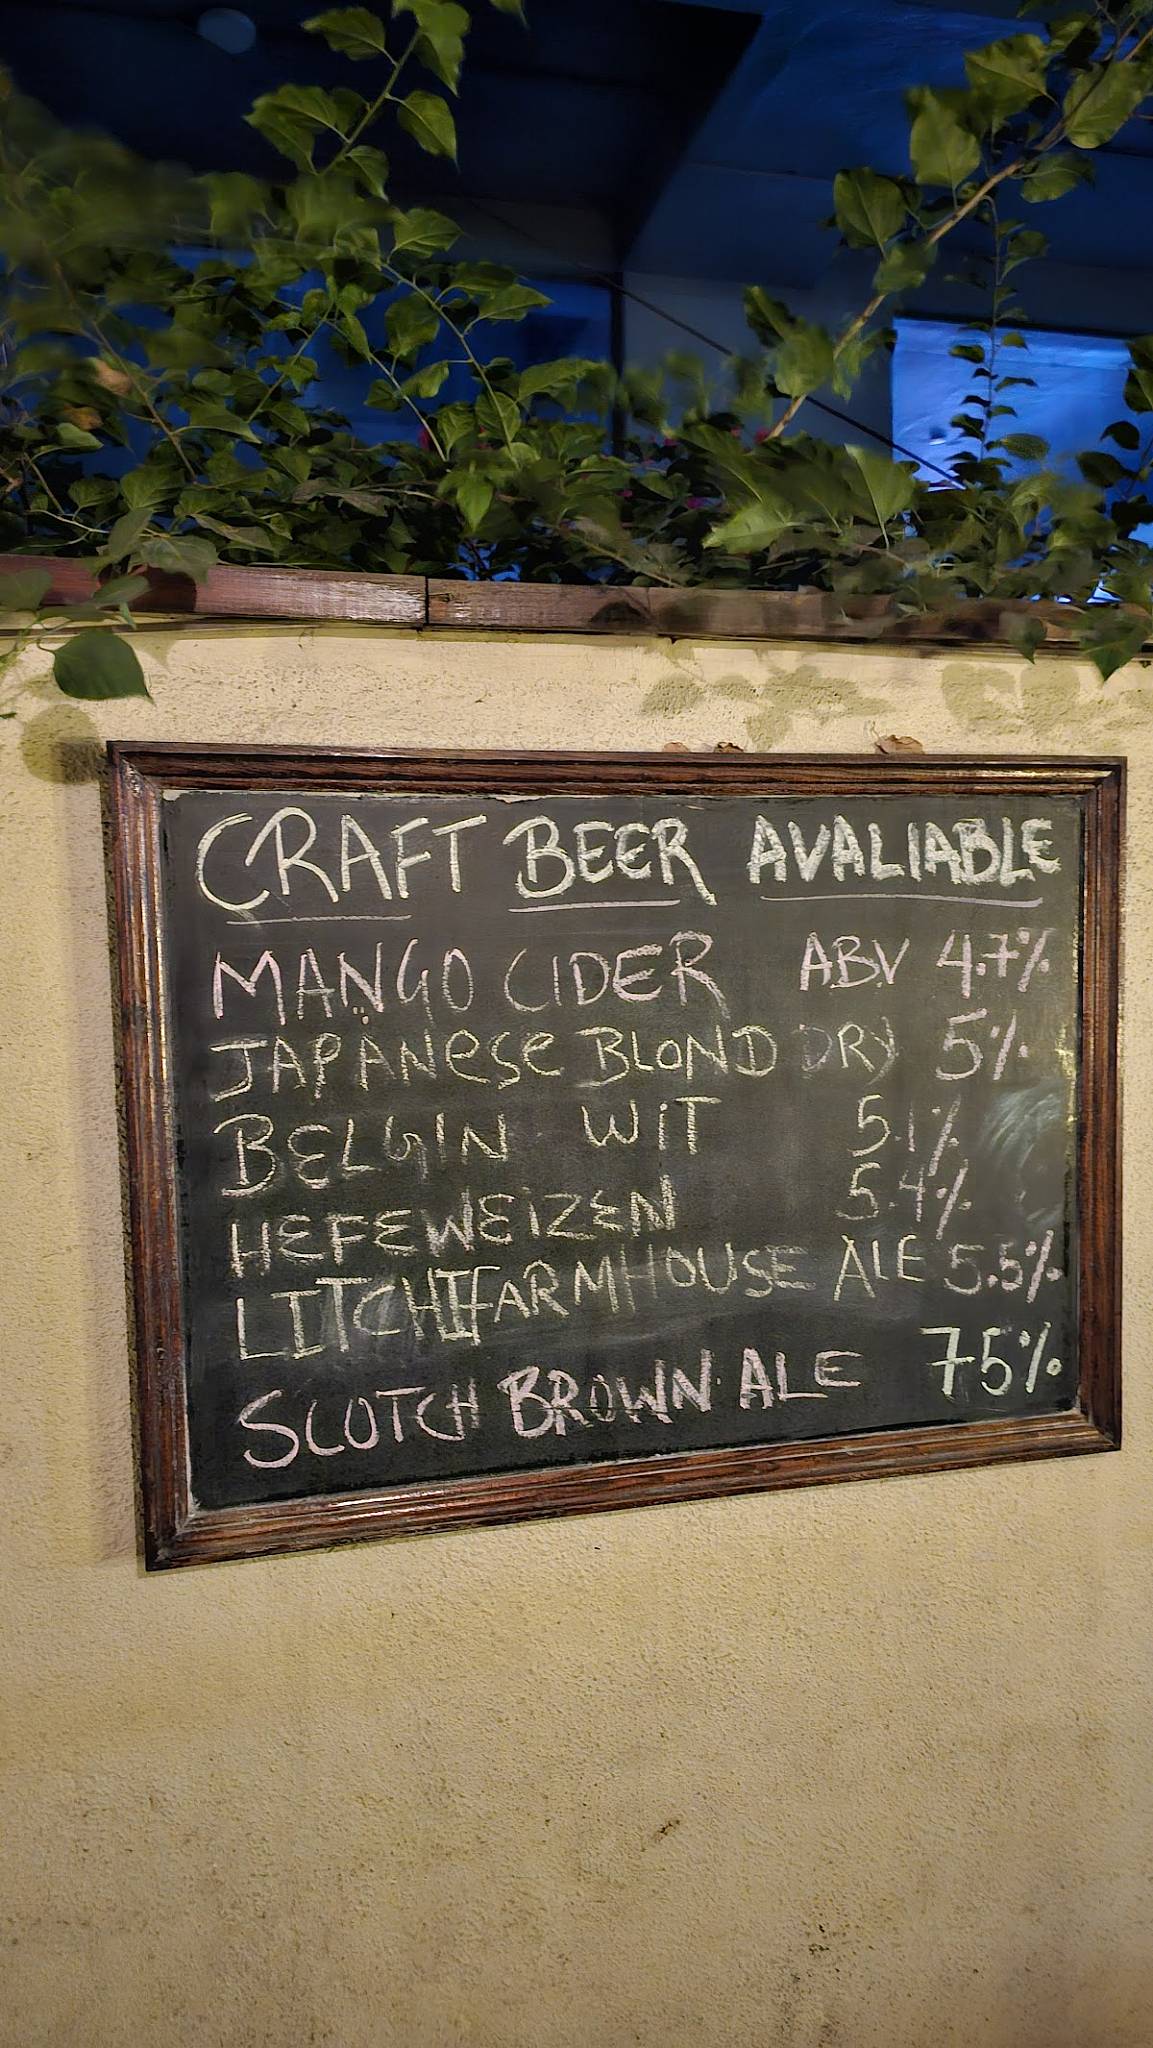 CRAFT BEER AVALIABLE
MANGO CIDER ABV 4.7%
JAPANESE BLOND DRY 5%
BELGIN WIT 5.1%
HEFEWEIZEN 5.4%
LITCHI FARMHOUSE ALE 5.5%
SCOTCH BROWN ALE 75%